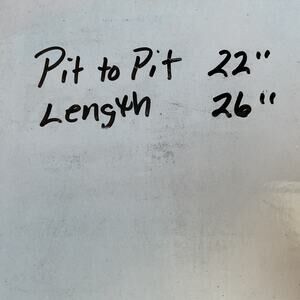 Pit to Pit 22"
Length 26"